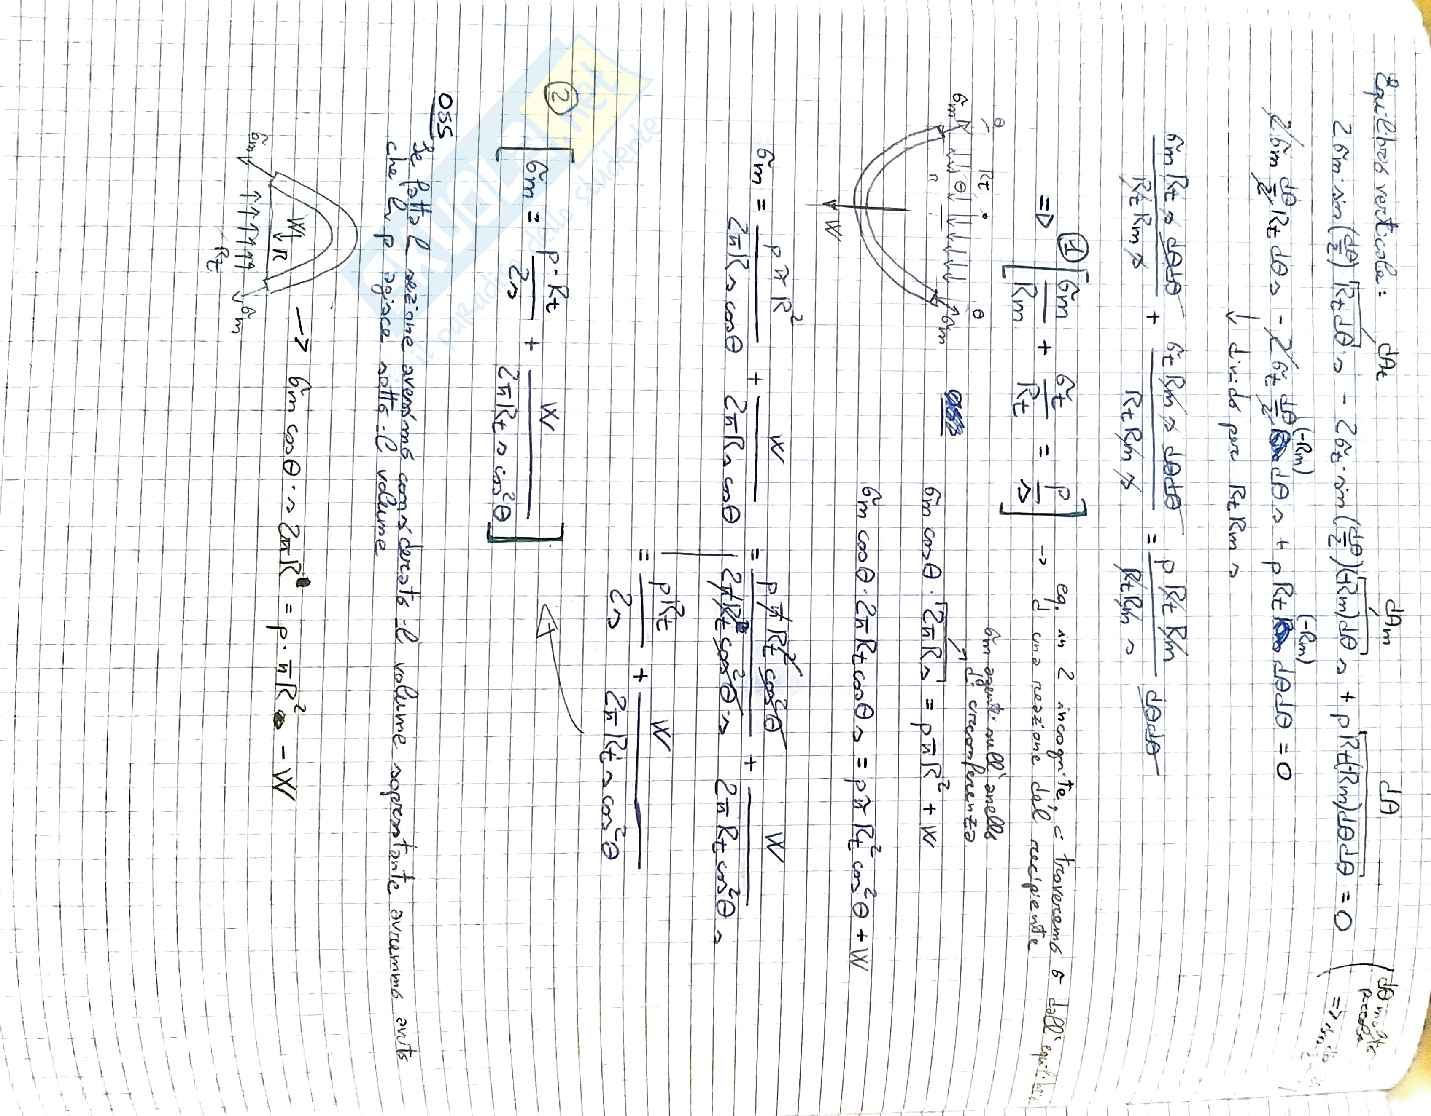 Equilibrio verticale:
dAt dAm dA
2σm·sin(dθ/2) Rt dθ·s - 2σt·sin(dθ/2)(-Rm)dθ s + p Rt(-Rm)dθdθ = 0 (dθ molto piccolo
2σm dθ/2 Rt dθ s - 2σt dθ/2 (-Rm) dθ s + p Rt (-Rm) dθdθ = 0
↓ divido per Rt Rm s
σm Rt s dθdθ / Rt Rm s + σt Rm s dθdθ / Rt Rm s = p Rt Rm / Rt Rm s dθdθ
⇒ ① [σm/Rm + σt/Rt = p/s] → eq. in 2 incognite, troveremo σ dall'
di una sezione del recipiente
θ Rt θ
σm θ σm
W
σm agente sull'anello
di circonferenza
σm cosθ · 2πRs = pπR² + W
σm cosθ·2πRt cosθ s = pπRt² cos²θ + W
σm = pπR² / 2πRs cosθ + W / 2πRs cosθ = pπRt² cos²θ / 2πRt cos²θ s + W / 2πRt cos²θ s
= pRt / 2s + W / 2πRt s cos²θ
② [σm = p·Rt / 2s + W / 2πRt s cos²θ]
OSS
Se fatta la sezione avessimo considerato il volume soprastante avremmo avuto
che la p agisce sotto il volume
σm W R σm
Rt
→ σm cosθ·s 2πR = p·πR² - W
Skuola.net
il paradiso dello studente